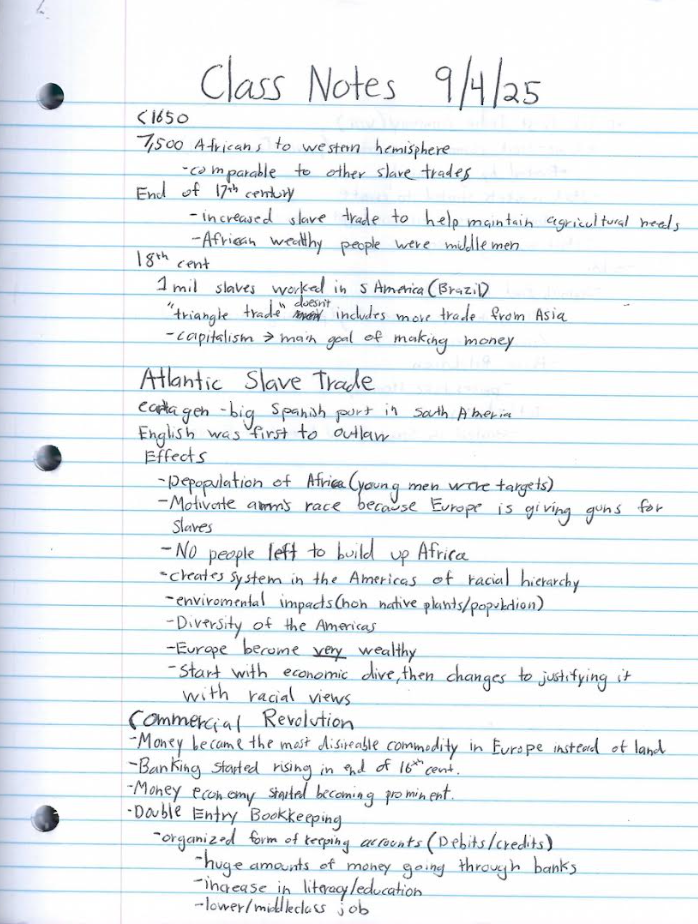 Class Notes 9/4/25
<1650
7,500 Africans to western hemisphere
-comparable to other slave trades
End of 17th century
-increased slave trade to help maintain agricultural needs
-African wealthy people were middle men
18th cent
1 mil slaves worked in S America (Brazil)
"triangle trade" doesn't includes more trade from Asia
-capitalism → main goal of making money
Atlantic Slave Trade
-big Spanish port in South Ameria
English was first to outlaw
Effects
-Depopulation of Africa (young men were targets)
-Motivate arms race because Europe is giving guns for
slaves
-No people left to build up Africa
-creates system in the Americas of racial hierarchy
-enviromental impacts (non native plants/population)
-Diversity of the Americas
-Europe become very wealthy
-Start with economic dive, then changes to justifying it
with racial views
Commercial Revolution
-Money became the most disireable commodity in Europe instead of land
-Banking started rising in end of 16th cent.
-Money economy started becoming prominent.
-Double Entry Bookkeeping
-organized form of keeping accounts (Debits/credits)
-huge amounts of money going through banks
-increase in literacy/education
-lower/middleclass job